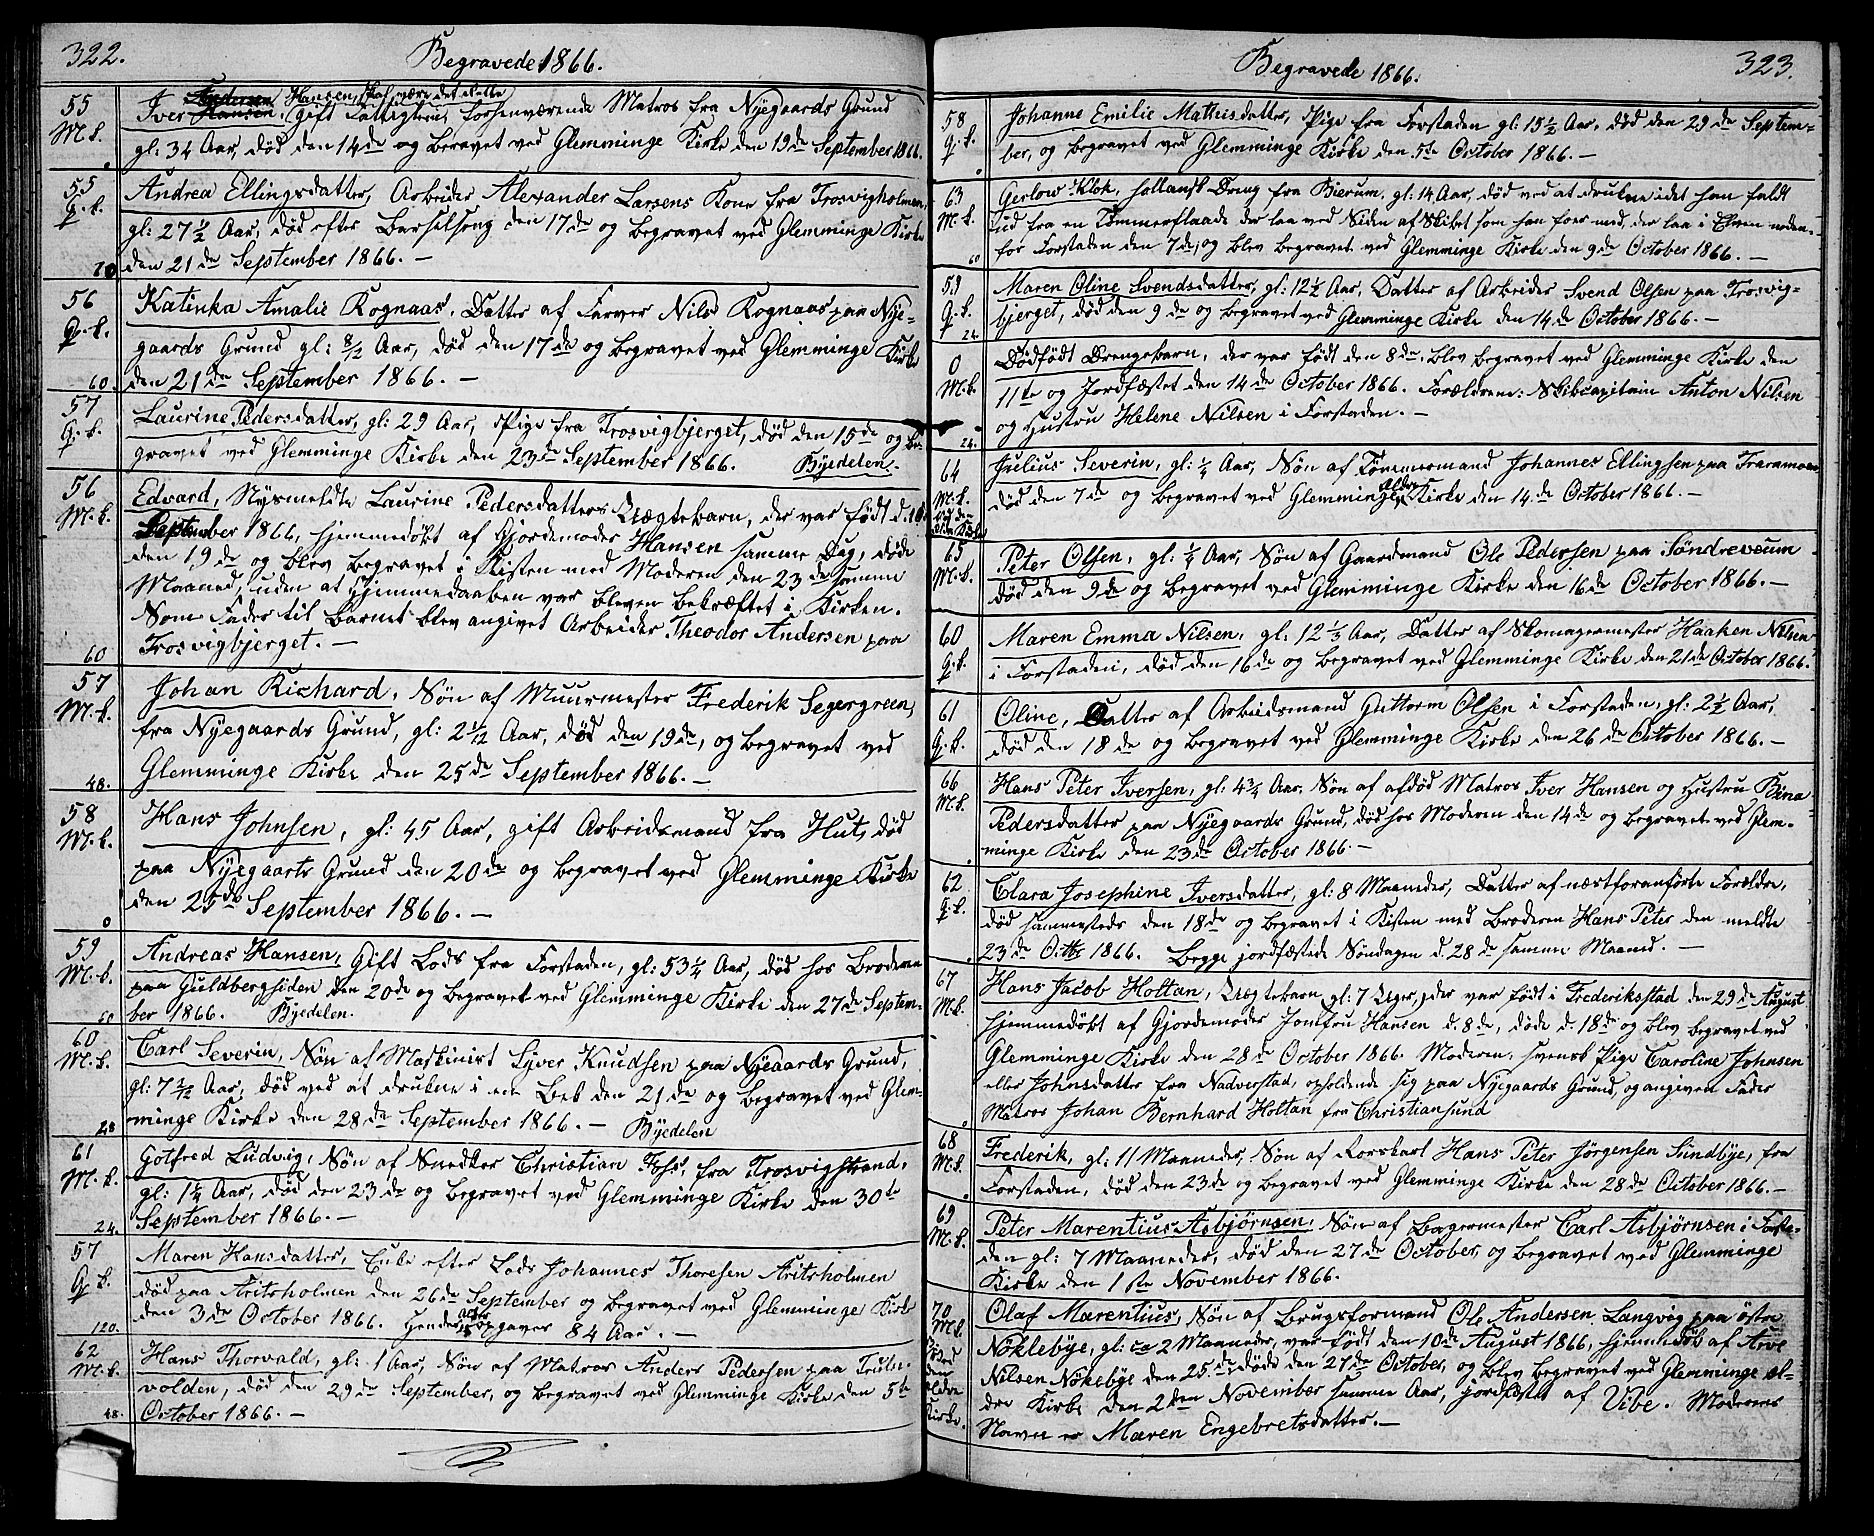 322.
Begravede 1866.
55
M.k.
Iver Hansen, gift forhenværende Matros fra Nyegaards Grund
gl: 34 Aar, død den 14de og begravet ved Glemminge Kirke den 19de September 1866.
55
Q.k.
Andrea Ellingsdatter, Arbeider Alexander Larsens Kone fra Trosvigholmen,
gl: 27 1/2 Aar, død efter Barselseng den 17de og begravet ved Glemminge Kirke
70 den 21de September 1866. —
56
Q.k.
Katinka Amalie Rognaas, Datter af Farver Nils Rognaas paa Nye-
gaards Grund gl: 8/12 Aar, død den 17de og begravet ved Glemminge Kirke
60. den 21de September 1866. —
57
Q.k.
Laurine Pedersdatter, gl: 29 Aar, Pige fra Trosvigbjerget, død den 15de og be-
gravet ved Glemminge Kirke den 23de September 1866. Byedelen.
56
M.k.
Edvard, Nysmeldte Laurine Pedersdatters Uægtebarn, der var født d.
September 1866, hjemmedøbt af Gjordemoder Hansen samme Dag, døde
den 19de og blev begravet i Kisten med Moderen den 23de samme
Maaned, uden at Hjemmedaaben var bleven bekræftet i Kirken.
Som Fader til Barnet blev angivet Arbeider Theodor Andersen paa
60 Trosvigbjerget. —
57
M.k.
Johan Richard, Søn af Muurmester Frederik Segergreen,
fra Nyegaards Grund, gl: 2 1/12 Aar, død den 19de, og begravet ved
48. Glemminge Kirke den 25de September 1866. —
58
M.k.
Hans Johnsen, gl: 45 Aar, gift Arbeidsmand fra Hut, død
paa Nyegaards Grund den 20de og begravet ved Glemminge Kirke
0 den 25de September 1866. —
59
M.k.
Andreas Hansen, Gift Lods fra Forstaden, gl: 53 1/4 Aar, død hos Broderen
paa Guldbergsiden den 20de og begravet ved Glemminge Kirke den 27de Septem-
60 ber 1866. Byedelen.
60
M.k.
Carl Severin, Søn af Maskinist Syver Knudsen paa Nyegaards Grund,
gl: 7 Aar, død ved at drukne i en Bæk den 21de og begravet ved Glem-
28 minge Kirke den 28de September 1866. — Byedelen
61
M.k.
Gotfred Ludvig, Søn af Snedker Christian fra Trosvigstrand,
gl: 1 1/4 Aar, død den 23de og begravet ved Glemminge Kirke den 30te
24. September 1866. —
57
Q.k.
Maren Hansdatter, Enke efter Lods Johannes Thoresen Aritsholmen
død paa Aritsholmen den 26de September og begravet ved Glemminge Kirke
120. den 3de October 1866. Hendes Alder opgaves 84 Aar. —
62
M.k.
Hans Thorvald, gl: 1 Aar, Søn af Matros Anders Pedersen paa
volden, død den 29de September, og begravet ved Glemminge Kirke den 5te
48. October 1866. —
Begravede 1866.
323.
58
Q.k.
Johanne Emilie Mathisdatter, Pige fra Forstaden gl: 15 1/2 Aar, død den 29de Septem-
ber, og begravet ved Glemminge Kirke den 5te October 1866. —
63
M.k.
Gerlow Klok, hollandsk Dreng fra Bierum, gl: 14 Aar, død ved at drukne idet han faldt
ud fra en Tømmerflaade der laa ved Siden af Skibet som han foer med, der laa i Elven neden-
60 for Forstaden den 7de, og blev begravet ved Glemminge Kirke den 9de October 1866. —
59
Q.k.
Maren Oline Svendsdatter, gl: 12 1/2 Aar, Datter af Arbeider Svend Olsen paa Trosvig-
24. bjerget, død den 9de og begravet ved Glemminge Kirke den 14de October 1866. —
0
M.k.
Dødfødt Drengebarn, der var født den 8de, blev begravet ved Glemminge Kirke den
11te og Jordfæstet den 14de October 1866. Forældrene: Skibscapitain Anton Nilsen
24. og Hustru Helene Nilsen i Forstaden. —
64
M.k.
ved den
ældre Kirke
Julius Severin, gl: 1/4 Aar, Søn af Tømmermand Johannes Ellingsen paa Traramoen
død den 7de og begravet ved Glemminge Ældre Kirke den 14de October 1866. —
65
M.k.
Peter Olsen, gl: 1/4 Aar, Søn af Gaardmand Ole Pedersen paa Søndreveum
død den 9de og begravet ved Glemminge Kirke den 16de October 1866. —
60
Q.k.
Maren Emma Nilsen, gl: 12 1/3 Aar, Datter af Skomagermester Haaken Nilsen
i Forstaden, død den 16de og begravet ved Glemminge Kirke den 21de October 1866.
61
Q.k.
Oline, Datter af Arbeidsmand Guttorm Olsen i Forstaden, gl: 2 1/2 Aar,
død den 18de og begravet ved Glemminge Kirke den 26de October 1866. —
66
M.k.
Hans Peter Iversen, gl: 4 3/4 Aar, Søn af afdød Matros Iver Hansen og Hustru Bina
Pedersdatter paa Nyegaards Grund, død hos Moderen den 14de og begravet ved Glem-
minge Kirke den 23de October 1866. —
62
Q.k.
Clara Josephine Iversdatter, gl: 8 Maaneder, Datter af næstforanførte Forældre,
død sammesteds den 18de og begravet i Kisten med Broderen Hans Peter den meldte
23de Octbr 1866. Begge jordfæstede Søndagen d. 28de samme Maaned. —
67
M.k.
Hans Jacob Holtan, Uægtebarn, gl: 7 Uger, der var født i Frederiksstad den 29de August
hjemmedøbt af Gjordemoder Jomfru Hansen d. 8de, døde d. 18de og blev begravet ved
Glemminge Kirke den 28de October 1866. Moderen: svensk Pige Caroline Johnsen
eller Johnsdatter fra Nadverstad, opholdende sig paa Nyegaards Grund, og angiven Fader
Matros Johan Bernhard Holtan fra Christiansund
68
M.k.
Frederik, gl: 11 Maaneder, Søn af Rorskarl Hans Peter Jørgensen Sundbye, fra
Forstaden, død den 23de og begravet ved Glemminge Kirke den 28de October 1866. —
69
M.k.
Peter Marentius Asbjørnsen, Søn af Bagermester Carl Asbjørnsen i Forsta-
den gl: 7 Maaneder, død den 27de October, og begravet ved Glemminge
Kirke den 1ste November 1866.
70
M.k.
Ved
den
ældre
Kirke.
Olaf Marentius, Søn af Brugsformand Ole Andersen Langvig paa østre
Nøklebye, gl: ca 2 Maaneder, var født den 10de August 1866, hjemmedøbt af Arve
Nilsen Nøkebye den 25de, døde den 27de October, og blev begravet ved Glemminge æl-
dre Kirke den 2den November samme Aar, jordfæstet af Vibe. Moderens
Navn er Maren Engebretsdatter. —